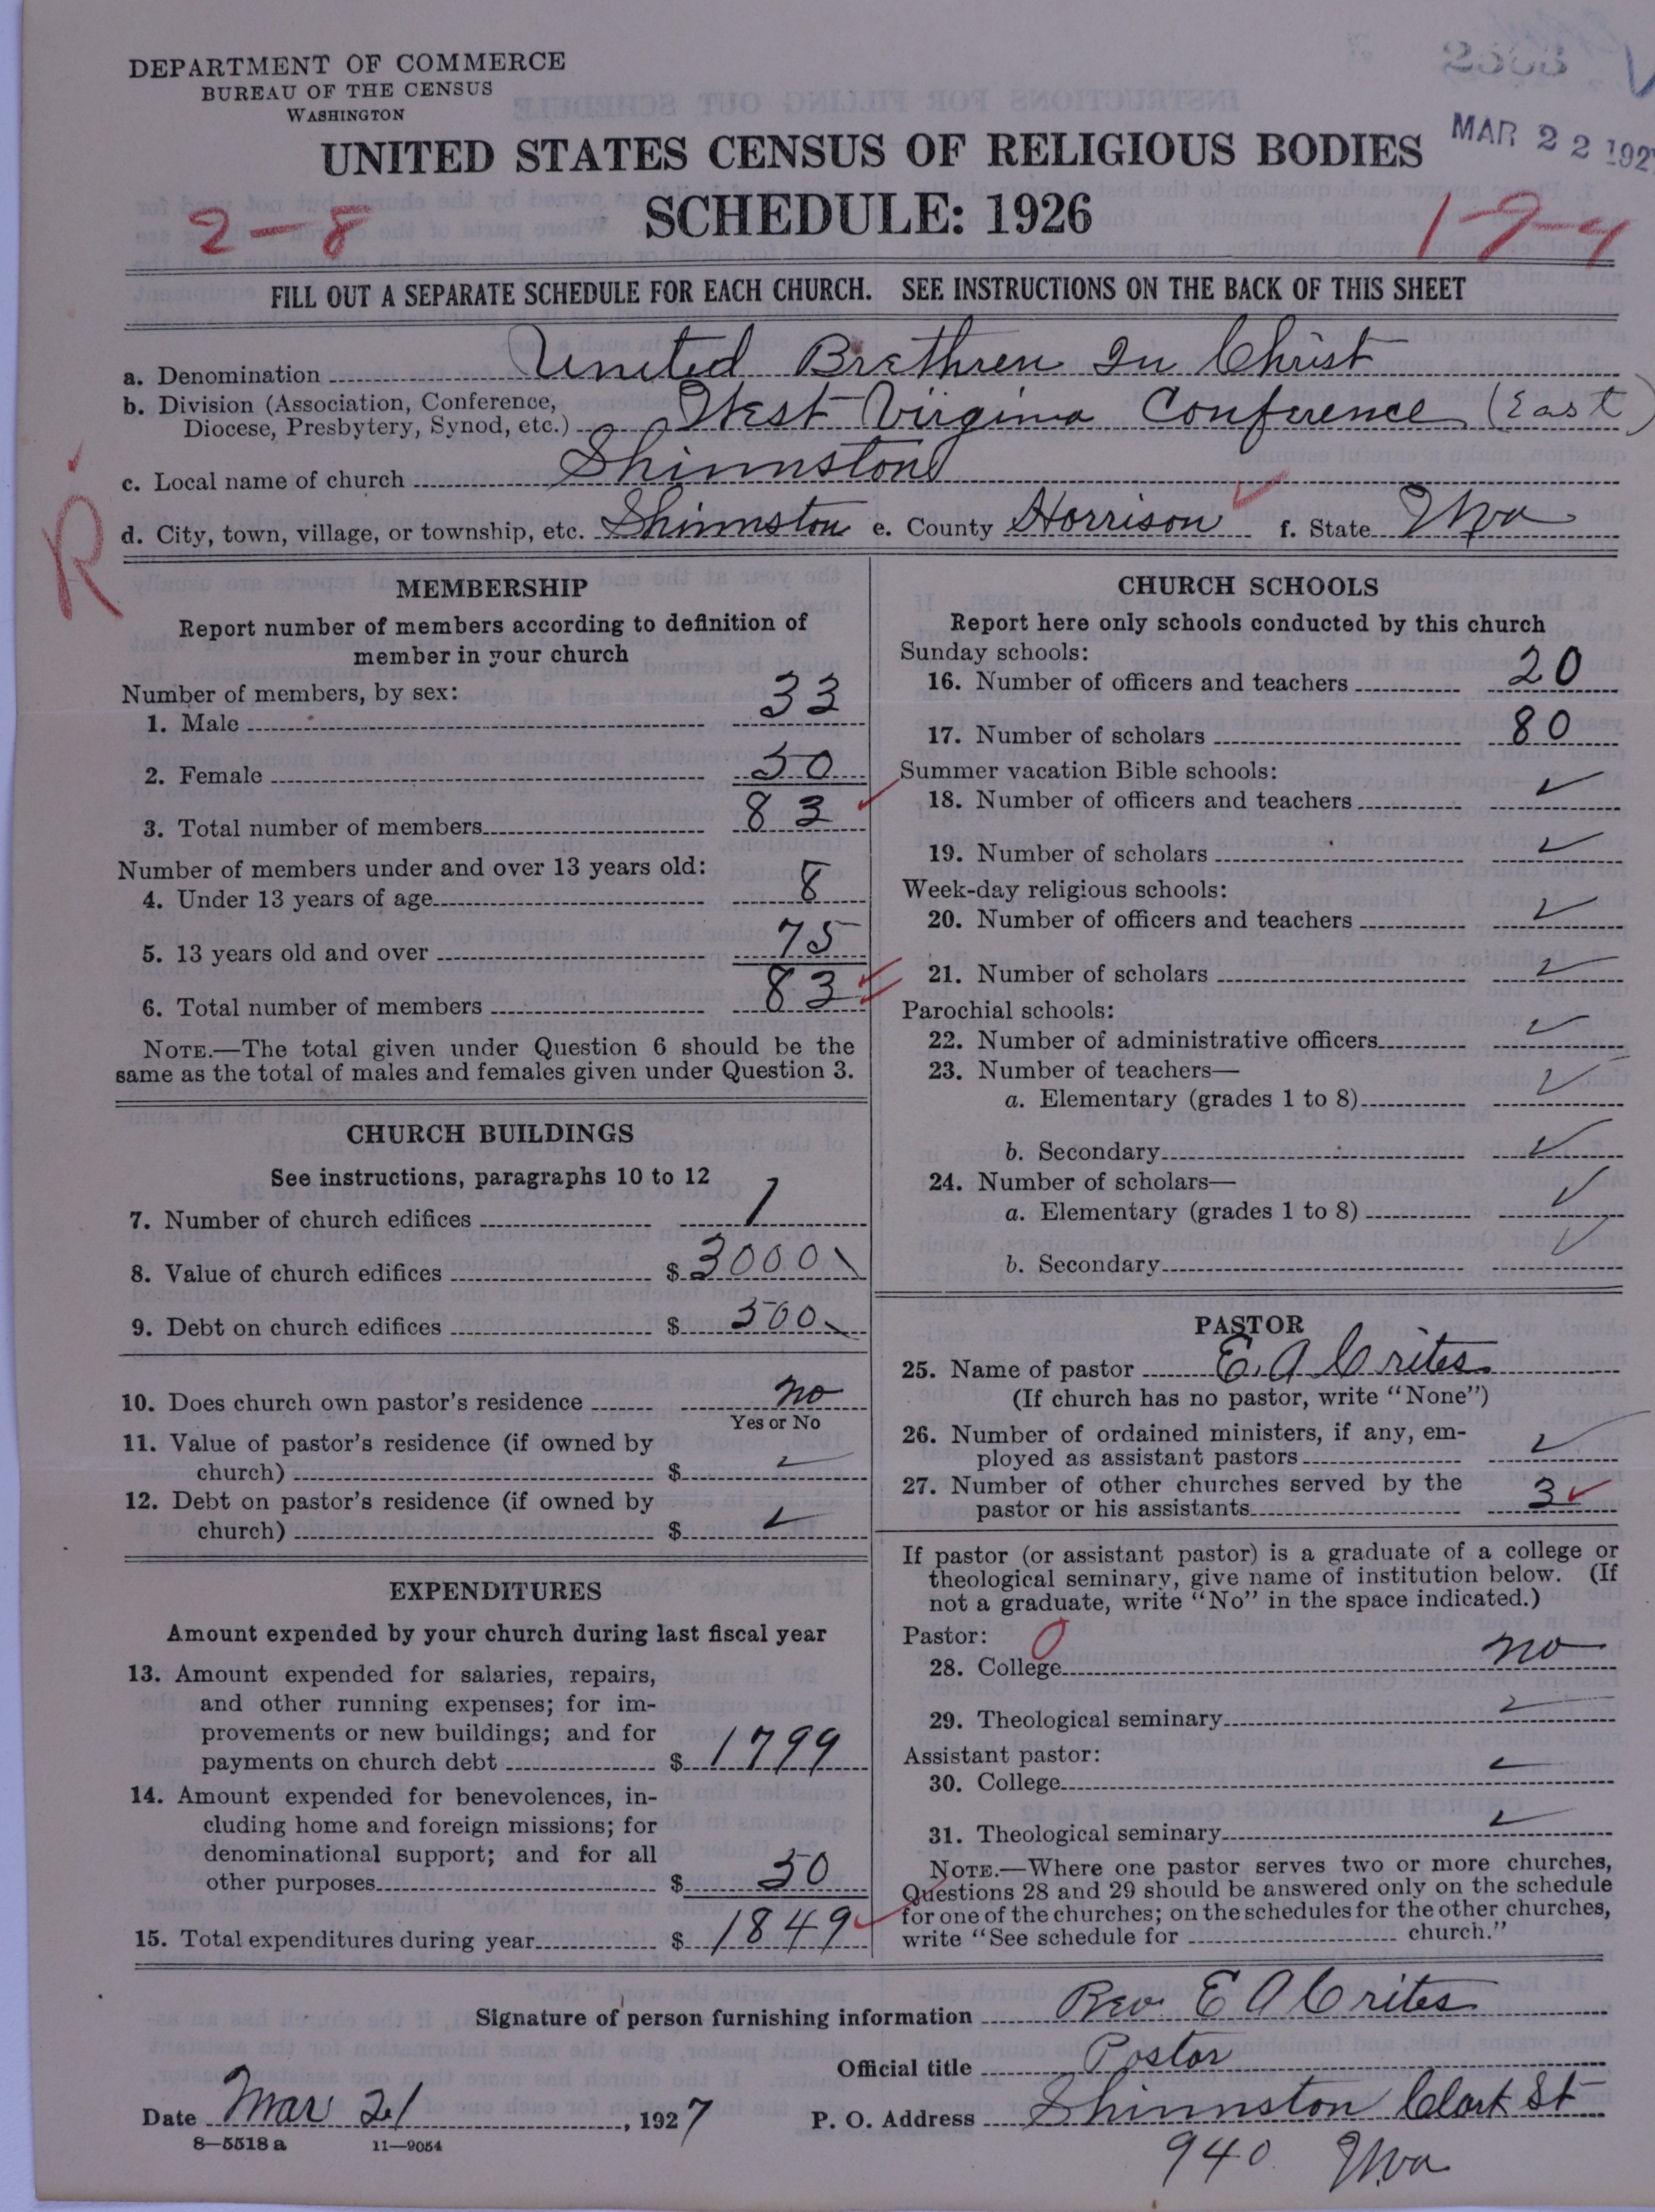 DEPARTMENT OF COMMERCE
BUREAU OF THE CENSUS
WASHINGTON
UNITED STATES CENSUS OF RELIGIOUS BODIES
MAR 22 192
SCHEDULE: 1926
2-8
1-9-4
FILL OUT A SEPARATE SCHEDULE FOR EACH CHURCH. SEE INSTRUCTIONS ON THE BACK OF THIS SHEET
a. Denomination United Brethren In Christ
b. Division (Association, Conference, Diocese, Presbytery, Synod, etc.) West Virginia Conference (East)
c. Local name of church Shinnston
d. City, town, village, or township, etc. Shinnston e. County Harrison ✓ f. State Wva
R
MEMBERSHIP
Report number of members according to definition of
member in your church
Number of members, by sex:
1. Male 33
2. Female 50
3. Total number of members 83 ✓
Number of members under and over 13 years old:
4. Under 13 years of age 8
5. 13 years old and over 75
6. Total number of members 83 ✓
NOTE.—The total given under Question 6 should be the
same as the total of males and females given under Question 3.
CHURCH BUILDINGS
See instructions, paragraphs 10 to 12
7. Number of church edifices 1
8. Value of church edifices $ 3000
9. Debt on church edifices $ 500
10. Does church own pastor's residence no
Yes or No
11. Value of pastor's residence (if owned by
church) $ ✓
12. Debt on pastor's residence (if owned by
church) $ ✓
EXPENDITURES
Amount expended by your church during last fiscal year
13. Amount expended for salaries, repairs,
and other running expenses; for im-
provements or new buildings; and for
payments on church debt $ 1799
14. Amount expended for benevolences, in-
cluding home and foreign missions; for
denominational support; and for all
other purposes $ 50
15. Total expenditures during year $ 1849 ✓
CHURCH SCHOOLS
Report here only schools conducted by this church
Sunday schools:
16. Number of officers and teachers 20
17. Number of scholars 80
Summer vacation Bible schools:
18. Number of officers and teachers ✓
19. Number of scholars ✓
Week-day religious schools:
20. Number of officers and teachers ✓
21. Number of scholars ✓
Parochial schools:
22. Number of administrative officers ✓
23. Number of teachers—
a. Elementary (grades 1 to 8) ✓
b. Secondary ✓
24. Number of scholars—
a. Elementary (grades 1 to 8) ✓
b. Secondary ✓
PASTOR
25. Name of pastor E. A Crites
(If church has no pastor, write "None")
26. Number of ordained ministers, if any, em-
ployed as assistant pastors ✓
27. Number of other churches served by the
pastor or his assistants 3 ✓
If pastor (or assistant pastor) is a graduate of a college or
theological seminary, give name of institution below. (If
not a graduate, write "No" in the space indicated.)
Pastor: 0
28. College no
29. Theological seminary ✓
Assistant pastor:
30. College ✓
31. Theological seminary ✓
NOTE.—Where one pastor serves two or more churches,
Questions 28 and 29 should be answered only on the schedule
for one of the churches; on the schedules for the other churches,
write "See schedule for church."
Signature of person furnishing information Rev. E A Crites
Official title Pastor
Date Mar 21, 1927 P. O. Address Shinnston Clark St
8—5518 a 11—9054
940 Wva